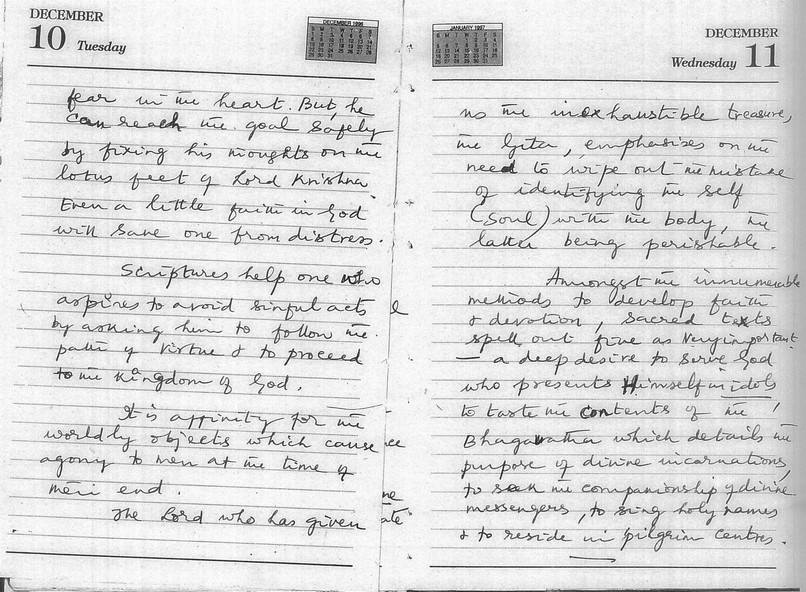 DECEMBER
10 Tuesday
DECEMBER 1996
fear in the heart. But, he
can reach the goal safely
by fixing his thoughts on the
lotus feet of Lord Krishna.
Even a little faith in God
will save one from distress.
Scriptures help one who
aspires to avoid sinful acts
by asking him to follow the
path of virtue & to proceed
to the Kingdom of God.
It is affinity for the
worldly objects which cause
agony to men at the time of
their end.
The Lord who has given
JANUARY 1997
DECEMBER
Wednesday 11
us the inexhaustible treasure,
the Gita, emphasises on the
need to wipe out the mistake
of identifying the self
(Soul) with the body, the
latter being perishable.
Amongst the innumerable
methods to develop faith
& devotion, sacred texts
spell out five as very important
— a deep desire to serve God
who presents Himself in idols
to taste the contents of the
Bhagavatha which details the
purpose of divine incarnations,
to seek the companionship of divine
messengers, to sing holy names
& to reside in pilgrim centres.